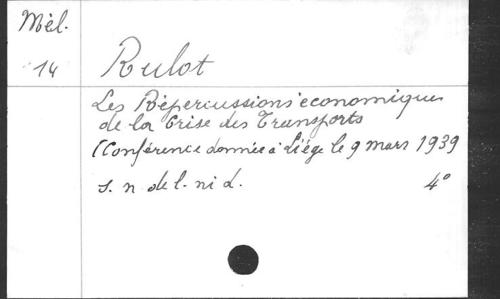 Mél.
14 Rulot
Les Répercussions économiques
de la Crise des Transports
(Conférence donnée à Liége le 9 mars 1939
s. n de l. ni d. 4°